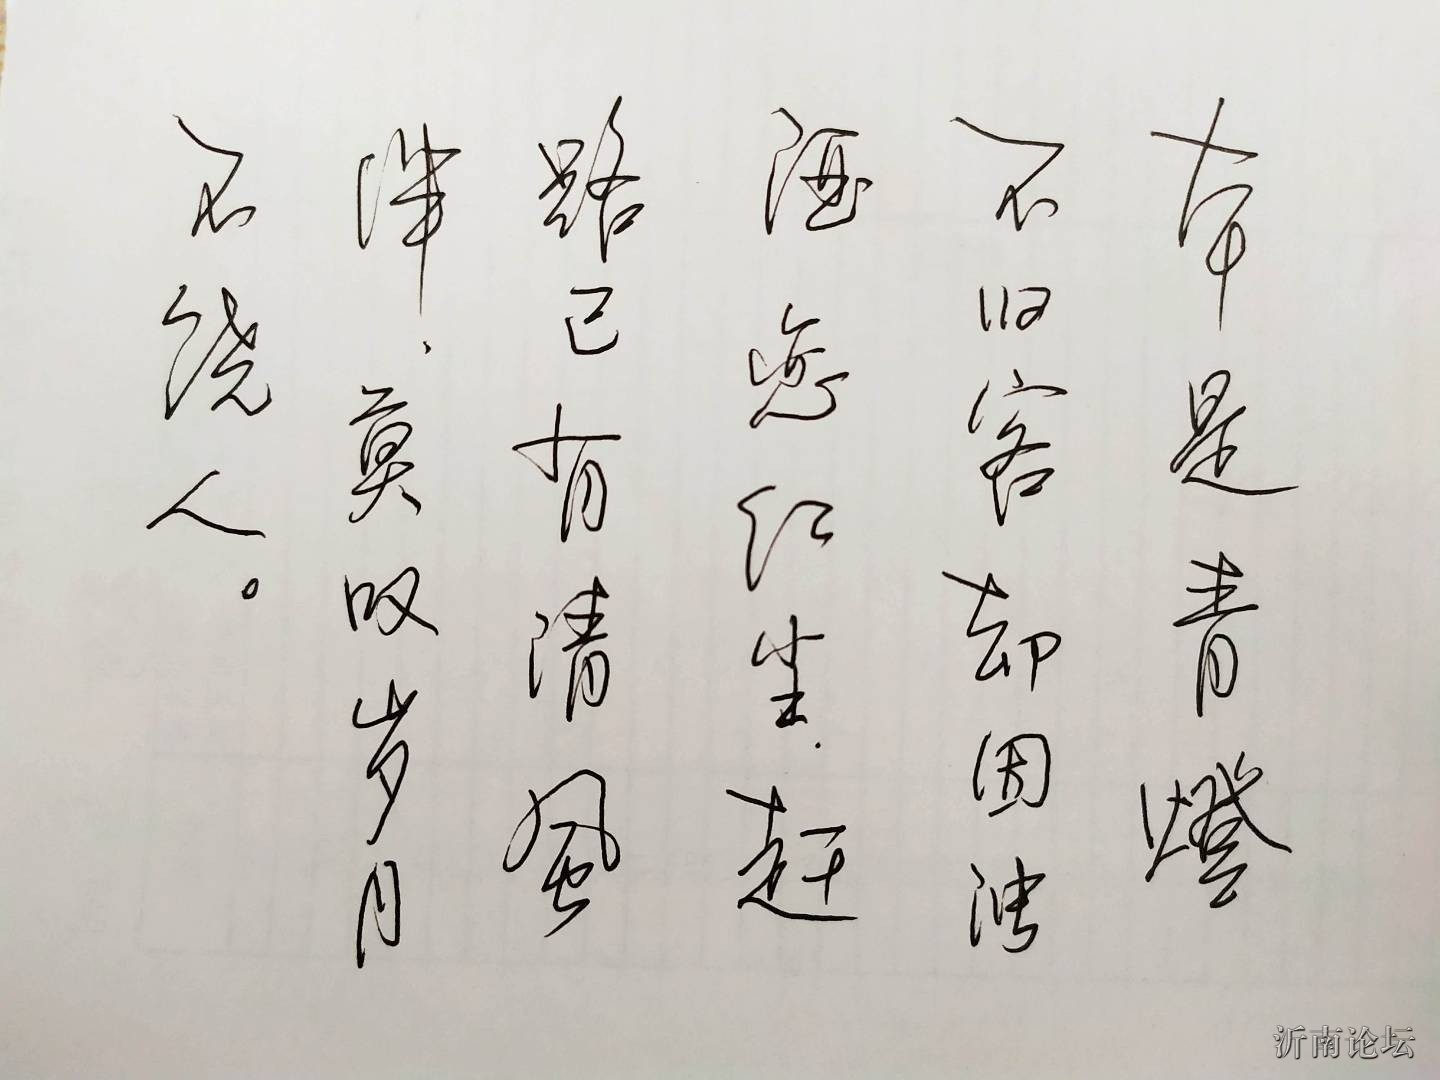 本是青燈
不归客却因浊
酒恋红尘.赶
路已有清風
伴.莫叹岁月
不饶人。
沂南论坛